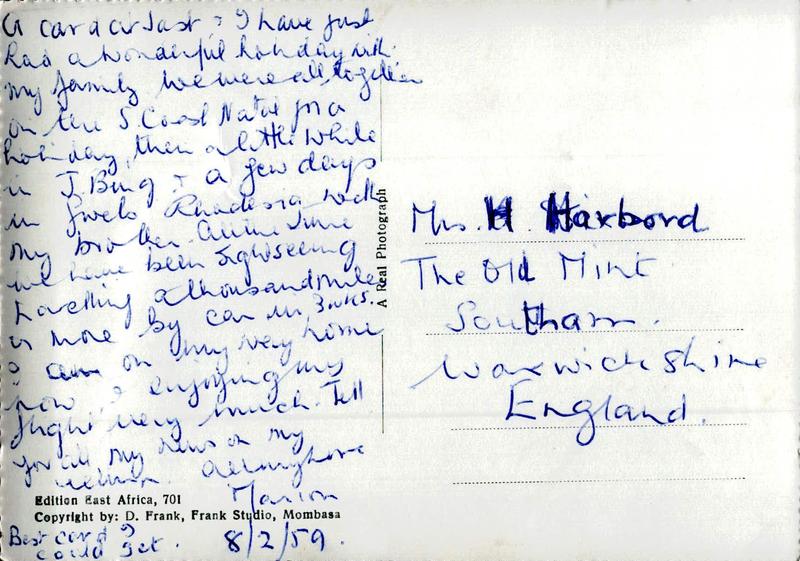 A card at last & I have just
had a wonderful holiday with
my family. We were all together
on the S Coast Natal for a
holiday, then a little while
in J. Burg & a few days
in Gwelo Rhodesia with
my brother. All the time
we have been sightseeing
travelling a thousand miles
or more by car in 3 wks.
I am on my way home
now & enjoying my
flight very much. Tell
you all my news on my
return. All my love
Marion
Edition East Africa, 701
Copyright by: D. Frank, Frank Studio, Mombasa
Best card I
could get. 8/2/59.
A Real Photograph
Mrs. H Harbord
The Old Mint
Southam.
Warwickshire
England.